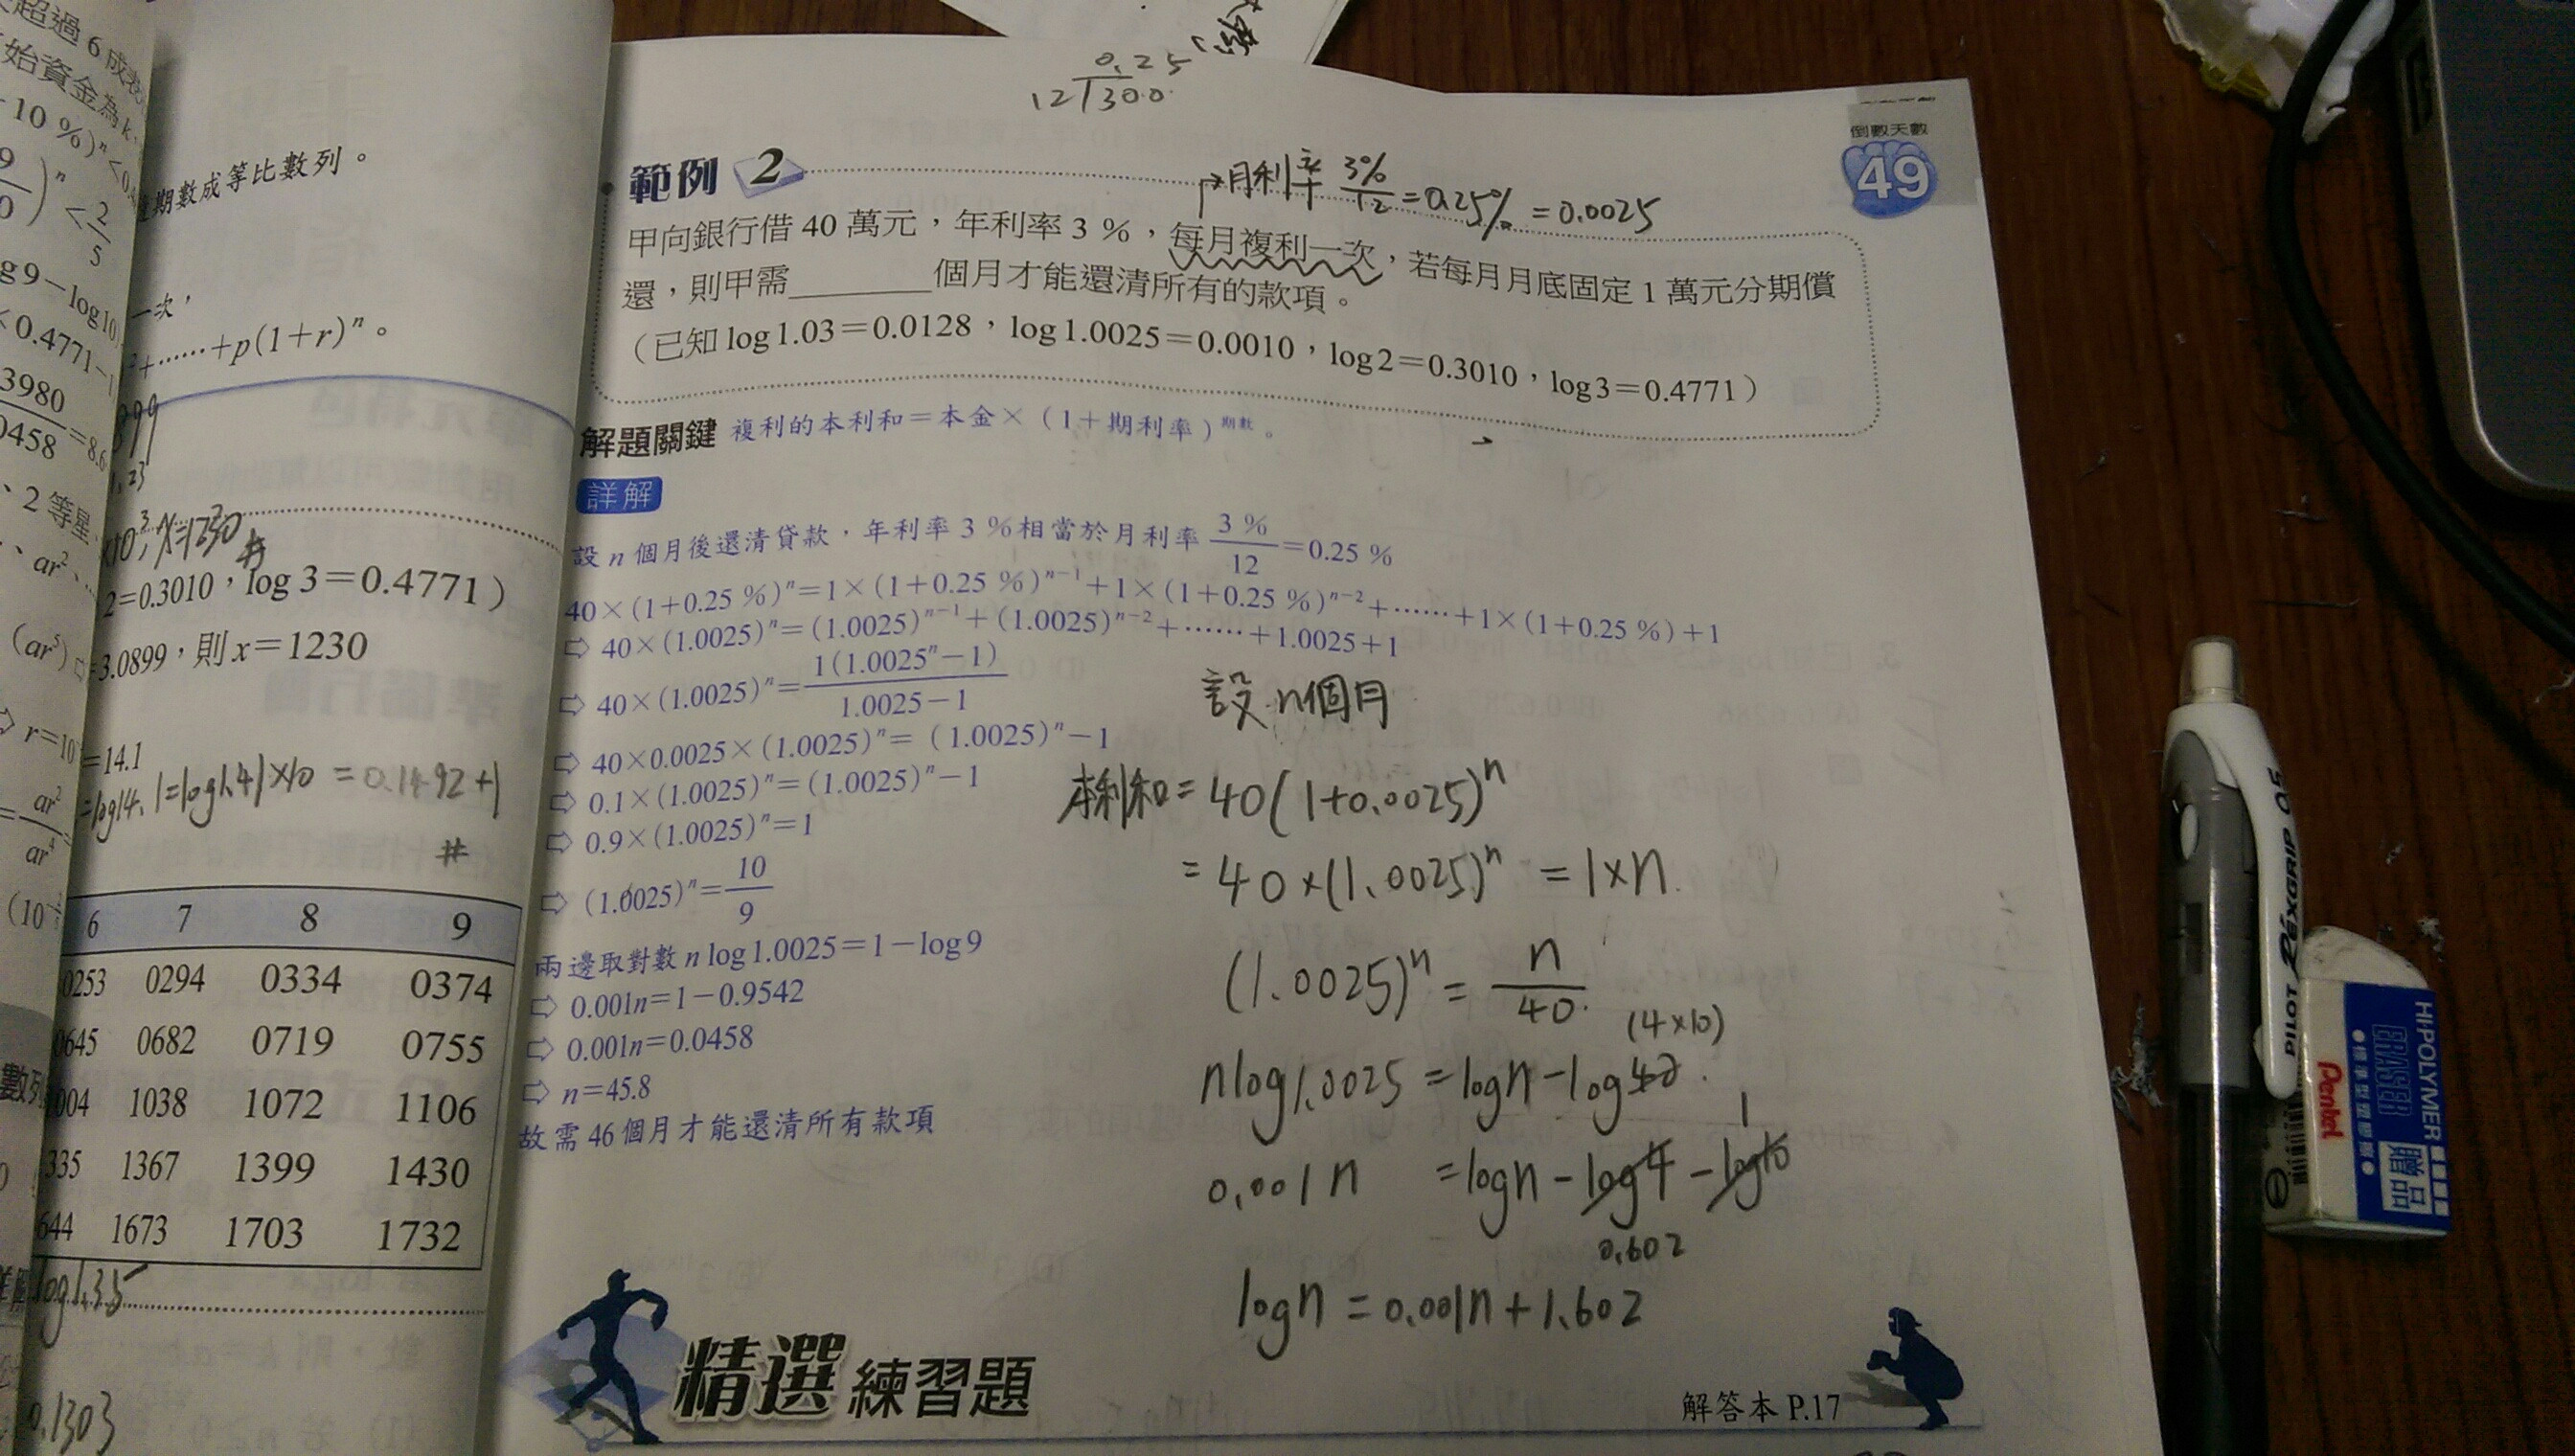 超過 6 成
始資金為 k
10 %)ⁿ <
9
0
)ⁿ < 2/5
g 9－log 10
< 0.4771－1
3980
0458
=8.6
、2 等星
、ar²、
(ar⁵)
⇨ r=10
= ar²/ar⁴
期數成等比數列。
一次，
²+……+p(1+r)ⁿ。
899
1.23
x10³, x=1230 #
2=0.3010，log 3=0.4771）
=3.0899，則 x=1230
=14.1
=log14.1=log1.41×10 = 0.1492+1
#
6 7 8 9
0253 0294 0334 0374
0645 0682 0719 0755
1004 1038 1072 1106
335 1367 1399 1430
644 1673 1703 1732
log1.35
0.1303
0.25
12)300
倒數天數
49
範例 2
月利率 3%/12 = 0.25% = 0.0025
甲向銀行借 40 萬元，年利率 3 %，每月複利一次，若每月月底固定 1 萬元分期償
還，則甲需________個月才能還清所有的款項。
（已知 log1.03=0.0128，log1.0025=0.0010，log2=0.3010，log3=0.4771）
解題關鍵 複利的本利和＝本金×（1＋期利率）期數。
詳解
設 n 個月後還清貸款，年利率 3 %相當於月利率 3 %/12=0.25 %
40×(1+0.25 %)ⁿ=1×(1+0.25 %)ⁿ⁻¹+1×(1+0.25 %)ⁿ⁻²+……+1×(1+0.25 %)+1
⇨ 40×(1.0025)ⁿ=(1.0025)ⁿ⁻¹+(1.0025)ⁿ⁻²+……+1.0025+1
⇨ 40×(1.0025)ⁿ=1(1.0025ⁿ−1)/1.0025−1
⇨ 40×0.0025×(1.0025)ⁿ=(1.0025)ⁿ−1
⇨ 0.1×(1.0025)ⁿ=(1.0025)ⁿ−1
⇨ 0.9×(1.0025)ⁿ=1
⇨ (1.0025)ⁿ=10/9
兩邊取對數 n log1.0025=1−log9
⇨ 0.001n=1−0.9542
⇨ 0.001n=0.0458
⇨ n=45.8
故需 46 個月才能還清所有款項
設 n個月
本利和 = 40(1+0.0025)ⁿ
= 40×(1.0025)ⁿ = 1×n
(1.0025)ⁿ = n/40
(4×10)
nlog1.0025 = logn − log40
1
0.001n = logn − log4 − log10
0.602
logn = 0.001n + 1.602
精選練習題
解答本 P.17
PILOT RÉXGRIP 0.5
HI-POLYMER
ERASER
Pentel
贈品